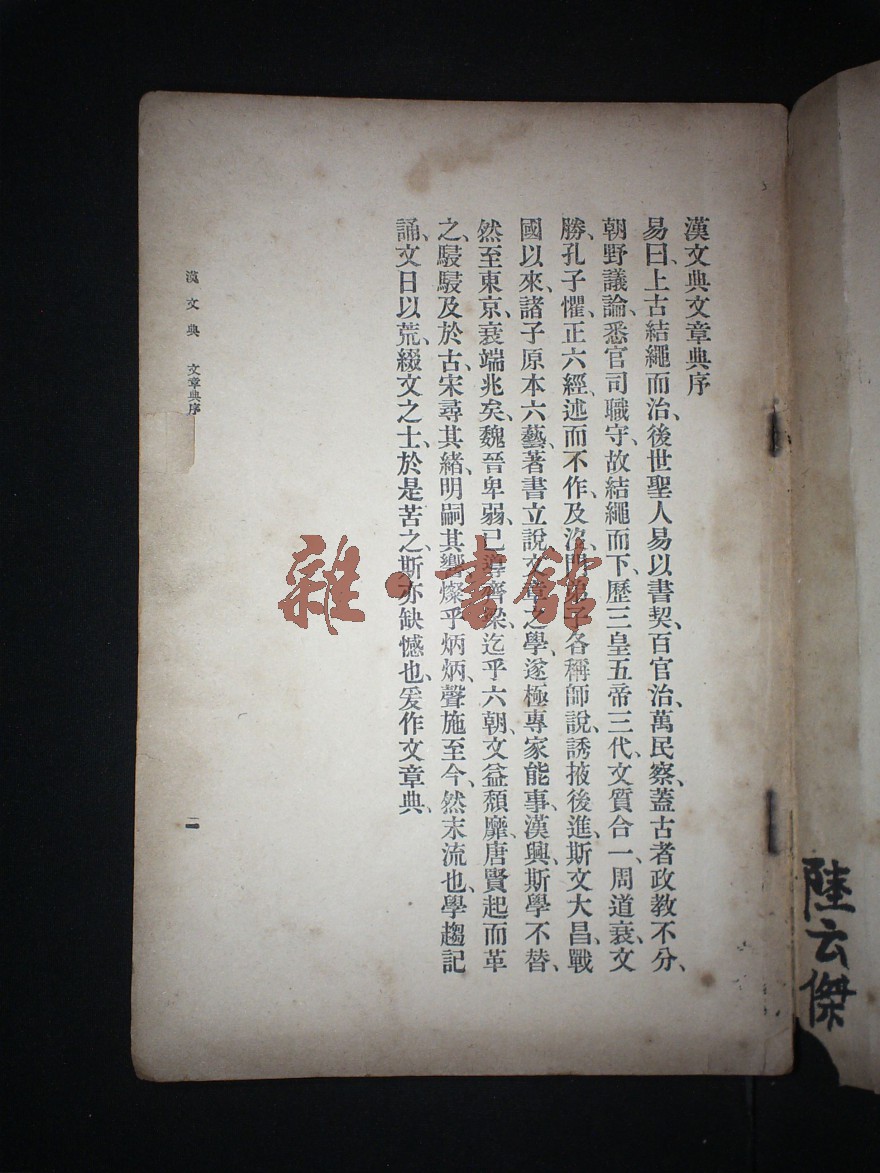 漢文典文章典序
易曰、上古結繩而治、後世聖人易以書契、百官治、萬民察、蓋古者政教不分、
朝野議論、悉官司職守、故結繩而下、歷三皇五帝三代、文質合一、周道衰、文
勝、孔子懼、正六經、述而不作、及沒、門弟子各稱師說、誘掖後進、斯文大昌、戰
國以來、諸子原本六藝、著書立說、文章之學、遂極專家能事、漢興、斯學不替、
然至東京、衰端兆矣、魏晉卑弱、已導齊梁、迄乎六朝、文益頹靡、唐賢起而革
之、駸駸及於古、宋尋其緒、明嗣其響、燦乎炳炳、聲施至今、然末流也、學趨記
誦、文日以荒、綴文之士、於是苦之、斯亦缺憾也、爰作文章典、
漢文典 文章典序
二
陸云傑
雜·書館